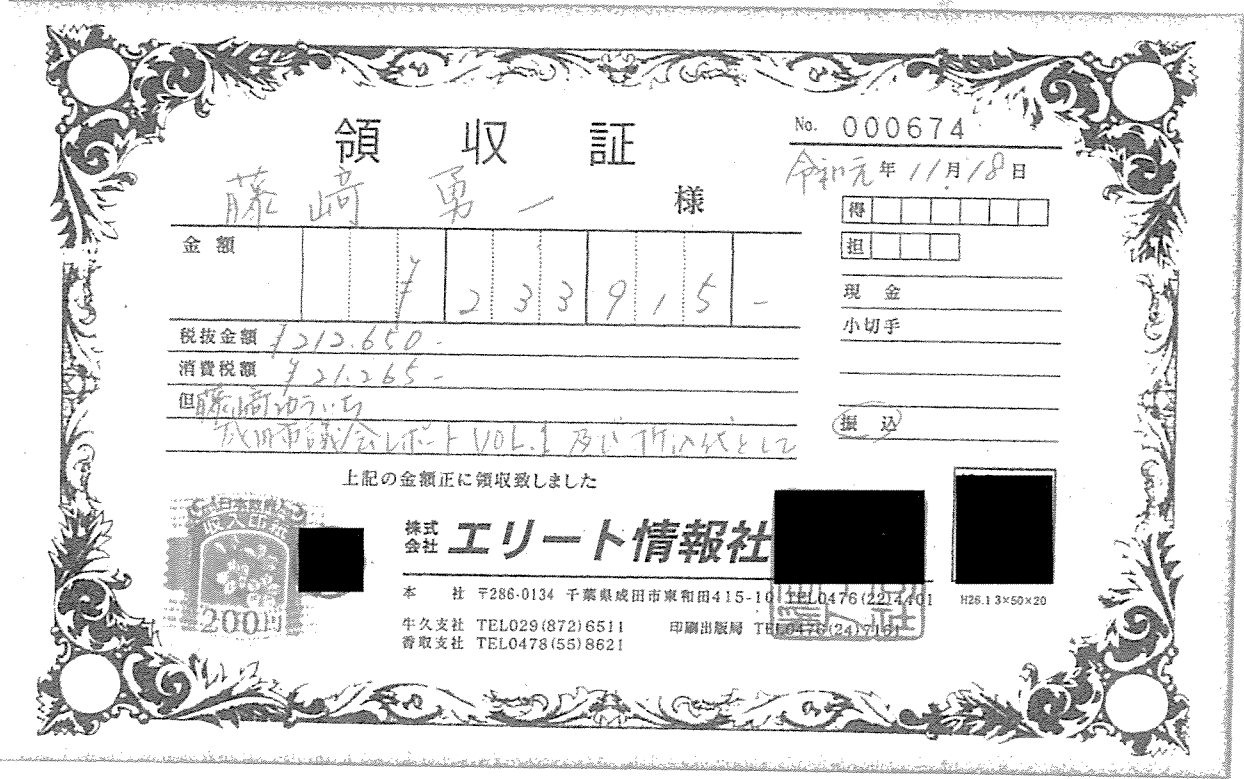 領収証
No. 000674
令和元年11月18日
藤崎 勇一 様
得
担
金額 ¥233915-
現金
小切手
税抜金額 ¥212.650-
消費税額 ¥21.265-
但 藤崎ゆういち
成田市議会レポート VOL.1 及び折込代として
振込
上記の金額正に領収致しました
日本政府
収入印紙
200円
株式会社 エリート情報社
本社 〒286-0134 千葉県成田市東和田415-10 TEL0476(22)4401
H26.1 3×50×20
牛久支社 TEL029(872)6511 印刷出版局 TEL0476(24)7161
香取支社 TEL0478(55)8621